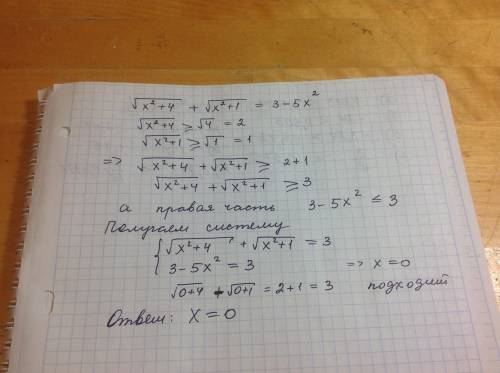 √(x²+4) + √(x²+1) = 3-5x²
√(x²+4) ≥ √4 = 2
√(x²+1) ≥ √1 = 1
=> √(x²+4) + √(x²+1) ≥ 2+1
√(x²+4) + √(x²+1) ≥ 3
а правая часть 3-5x² ≤ 3
Получаем систему
{ √(x²+4) + √(x²+1) = 3
3-5x² = 3 => x=0
√(0+4) + √(0+1) = 2+1 = 3 подходит
Ответ: x=0